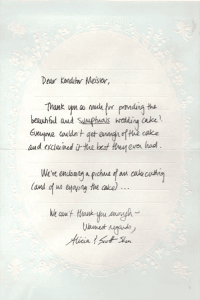 Dear Konditor Meister,
Thank you so much for providing the
beautiful and sumptuous wedding cake!
Everyone couldn't get enough of the cake
and exclaimed it the best they ever had.
We're enclosing a picture of our cake cutting
(and of us enjoying the cake) ...
We can't thank you enough —
Warmest regards,
Alicia & Scott